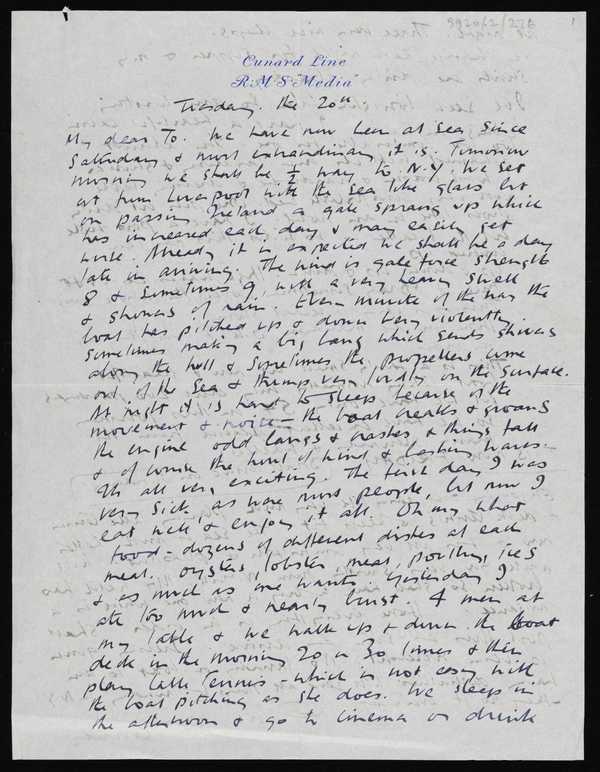 8920/2/276
1
Cunard Line
R.M.S "Media"
Tuesday. the 20th
My dear To. We have now been at sea since
Saturday & most extraordinary it is. Tomorrow
morning we shall be ½ way to N.Y. We set
out from Liverpool with the sea like glass but
on passing Ireland a gale sprang up which
has increased each day & may easily get
worse. Already it is expected we shall be a day
late in arriving. The wind is gale force strength
8 & sometimes 9 with a very heavy swell
& showers of rain. Every minute of the way the
boat has pitched up & down very violently.
Sometimes making a big bang which sends shivers
along the hull & sometimes the propellers come
out of the sea & thump very loudly on the surface.
At night it is hard to sleep because of the
movement & noise – the boat creaks & groans
the engine odd bangs & crashes & things fall
& of course the howl of wind & lashing waves.
Its all very exciting. The first day I was
very sick as were most people, but now I
eat well & enjoy it all. Oh my what
food – dozens of different dishes at each
meal. Oysters, lobster, meat, poultry, ices
& as much as one wants. Yesterday I
ate too much & nearly burst. 4 men at
my table & we walk up & down the boat
deck in the morning 20 or 30 times & then
play table tennis – which is not easy with
the boat pitching as she does. We sleep in
the afternoon & go to cinema or drink